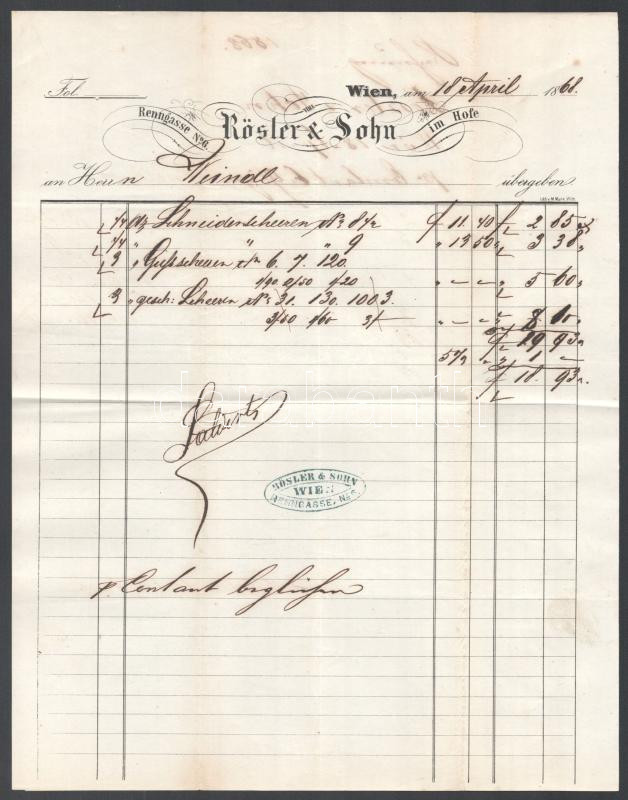 Fol.
Wien, am 18 April 1868.
Renngasse No 6. Rösler & Sohn im Hofe
an Herrn Weindl übergeben
1/4 Dz Schneiderscheeren No 8 1/2 f 11. 40 f 2 85
1/4 " " " 9 " 13 50 " 3 38
3 " 6. 7. 120. " — " 5 60
1/90 2/50 1/20
3 " gesch: Scheeren No 31. 130. 100 3. " — " 8 10
3/50 1/60 3/—
f 19 93
5% " 1 —
f 18. 93
darabanth
RÖSLER & SOHN
WIEN
RENNGASSE, No 6
p Contant beglichen